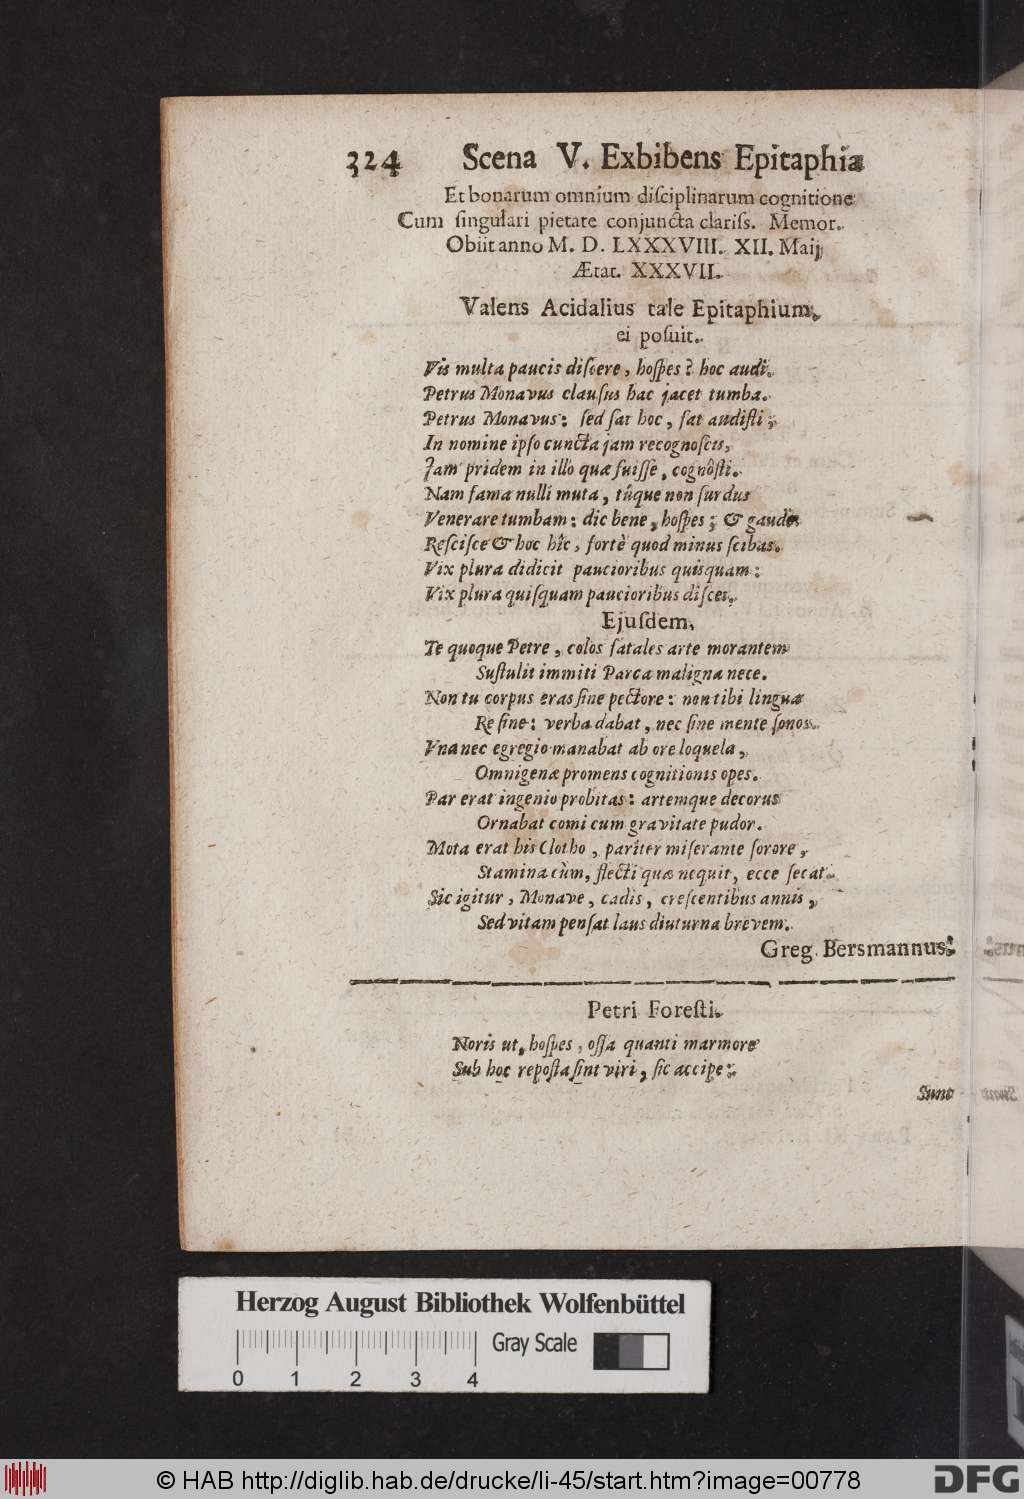 324 Scena V. Exbibens Epitaphia
Et bonarum omnium diſciplinarum cognitione
Cum ſingulari pietate conjuncta clariſs. Memor.
Obiit anno M. D. LXXXVIII. XII. Maij
Ætat. XXXVII.
Valens Acidalius tale Epitaphium
ei poſuit.
Vis multa paucis diſcere, hoſpes? hoc audi.
Petrus Monavus clauſus hac jacet tumba.
Petrus Monavus: ſed ſat hoc, ſat audiſti;
In nomine ipſo cuncta jam recognoſcis,
Jam pridem in illo quæ fuiſſe, cognôſti.
Nam fama nulli muta, tûque non ſurdus
Venerare tumbam: dic bene, hoſpes; & gaude
Reſciſce & hoc hîc, fortè quod minus ſcibas.
Vix plura didicit paucioribus quisquam:
Vix plura quiſquam paucioribus diſcet.
Ejuſdem,
Te quoque Petre, colos fatales arte morantem
Suſtulit immiti Parca maligna nece.
Non tu corpus eras ſine pectore: non tibi linguæ
Re ſine: verba dabat, nec ſine mente ſonos.
Vna nec egregio manabat ab ore loquela,
Omnigenæ promens cognitionis opes.
Par erat ingenio probitas: artemque decorus
Ornabat comi cum gravitate pudor.
Mota erat his Clotho, pariter miſerante ſorore,
Stamina cùm, flecti quæ nequit, ecce ſecat.
Sic igitur, Monave, cadis, creſcentibus annis,
Sed vitam penſat laus diuturna brevem.
Greg. Bersmannus.
Petri Foreſti.
Noris ut, hoſpes, oſſa quanti marmore
Sub hoc repoſta ſint viri, ſic accipe:
Sunt
Herzog August Bibliothek Wolfenbüttel
Gray Scale
0 1 2 3 4
© HAB http://diglib.hab.de/drucke/li-45/start.htm?image=00778
DFG